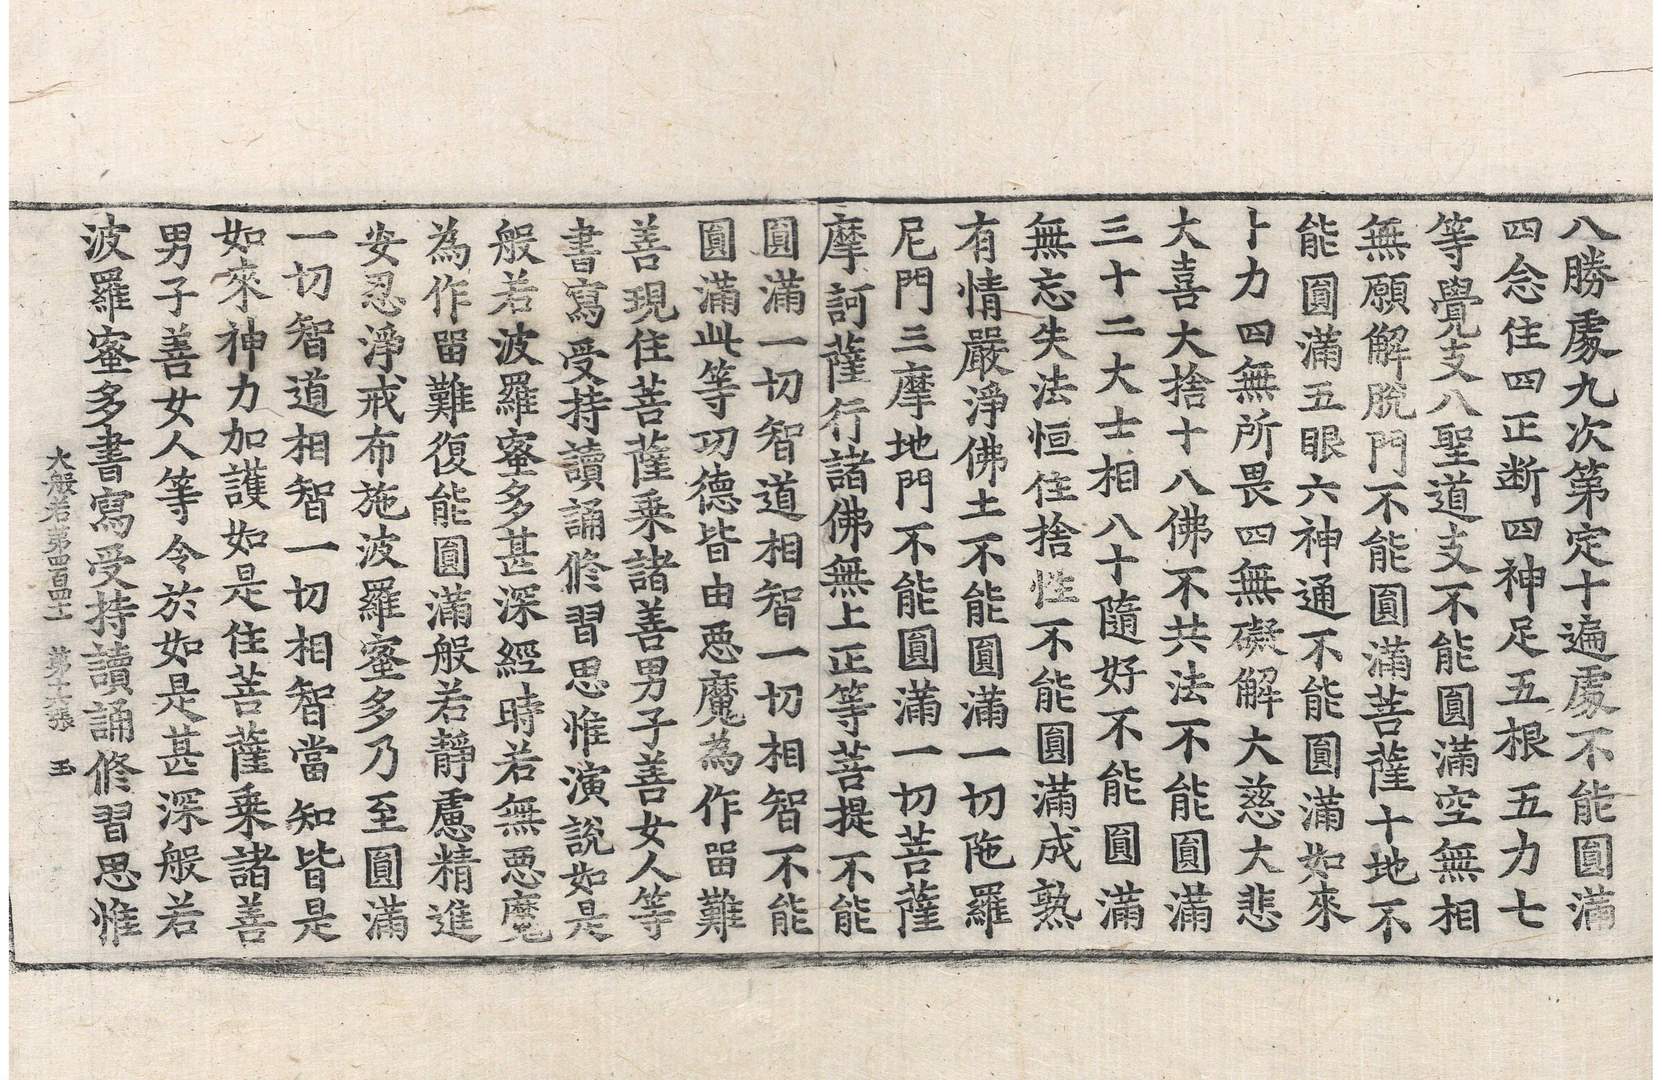 八勝處九次第定十遍處不能圓滿
四念住四正断四神足五根五力七
等覺支八聖道支不能圓滿空無相
無願解脫門不能圓滿菩薩十地不
能圓滿五眼六神通不能圓滿如來
十力四無所畏四無礙解大慈大悲
大喜大捨十八佛不共法不能圓滿
三十二大士相八十隨好不能圓滿
無忘失法恒住捨性不能圓滿成熟
有情嚴淨佛土不能圓滿一切陁羅
尼門三摩地門不能圓滿一切菩薩
摩訶薩行諸佛無上正等菩提不能
圓滿一切智道相智一切相智不能
圓滿此等功德皆由惡魔為作留難
善現住菩薩乘諸善男子善女人等
書寫受持讀誦修習思惟演說如是
般若波羅蜜多甚深經時若無惡魔
為作留難復能圓滿般若靜慮精進
安忍淨戒布施波羅蜜多乃至圓滿
一切智道相智一切相智當知皆是
如來神力加護如是住菩薩乘諸善
男子善女人等令於如是甚深般若
波羅蜜多書寫受持讀誦修習思惟
大般若第四百四十 第 張 玉